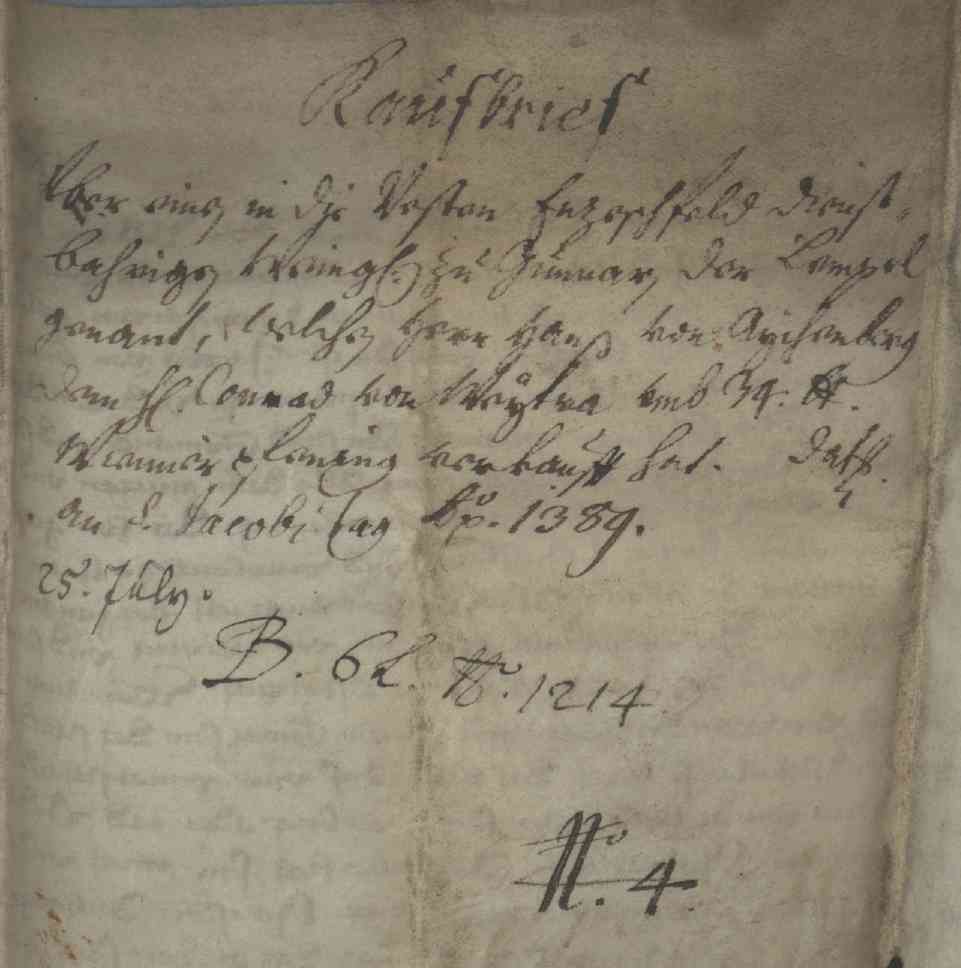 Kaufbrief
Über eines in die Vesten Enzeschfeld dienst-
bahriges Weingh. zu Gunnars der Lempel
genant, welches Herr Hanß von Aychenberg
dem H. Conrad von Weytra umb 34. ℔.
Wienner Pfening verkaufft hat. Datt.
an S. Jacobi Tag Ao. 1389.
25. July.
B. 62. No. 1214
No. 4